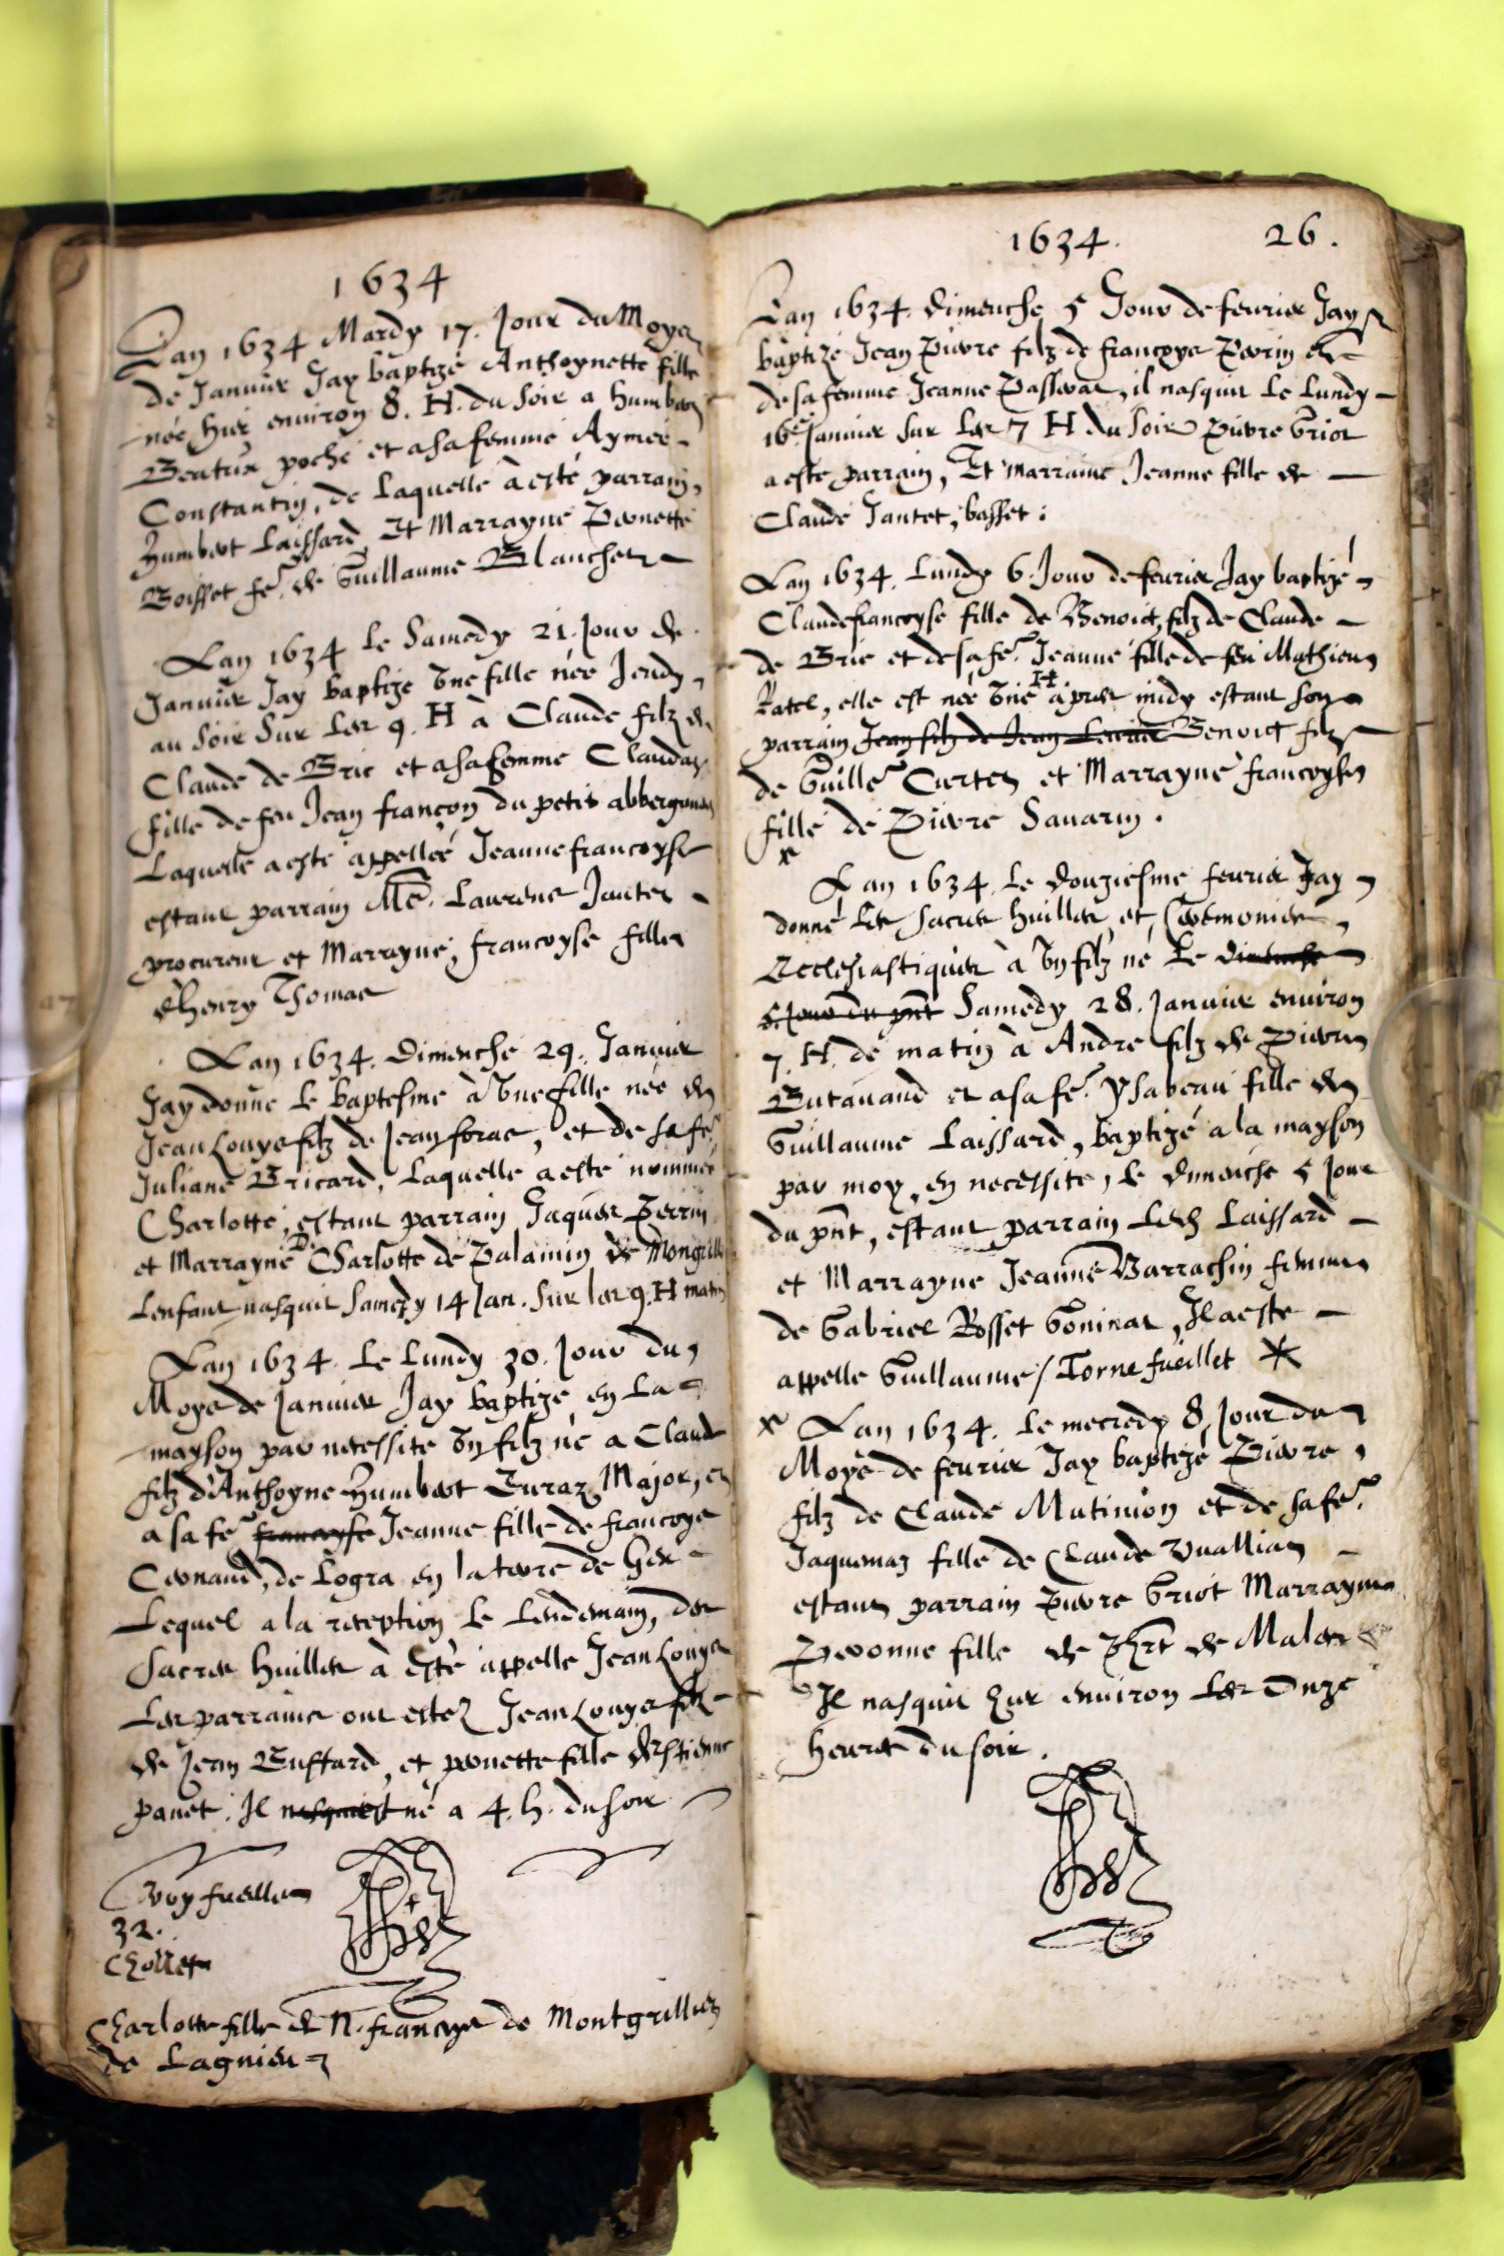 1634
Lan 1634 Mardy 17. Jour du Moys
de Janvier Jay baptizé Anthoynette fille
née hier environ 8. H. du soir a humbert
poche et a sa femme Aymée
Constantin, de laquelle à esté parrain,
humbert Laissard, Et Marrayne Pernette
Boisset fe. de Guillaume Blanchet
Lan 1634 le Samedy 21. Jour de
Janvier Jay baptizé une fille née Jeudy
au soir sur les 9. H à Claude filz de
Claude de Brie et a sa femme Clauda
fille de feu Jean françon du petit
Laquelle a esté appellée Jeannefrancoyse
estant parrain Me. Laurens Jantet
procureur et Marrayne, francoyse fille
d'henry Thomas
Lan 1634. Dimenche 29. Janvier
Jay donné le baptesme à une fille née de
Jean Louys filz de Jean foras, et de sa fe.
Juliane Bricard, Laquelle a esté nommée
Charlotte, estant parrain Jaques Perrin
et Marrayne De. Charlotte de Palamin de Mongrill
Lenfant nasquit Samedy 14 Jan. sur les 9. H matin
Lan 1634. Le Lundy 30. Jour du
Moys de Janvier Jay baptizé en la
mayson par necessite un filz né a Claude
filz d'Anthoyne humbert Turaz Major, et
a sa fe. francoyse Jeanne fille de francoys
de Logra en la terre de Gex
Lequel a la reception le lendemain, des
sacres huilles à esté appelle Jean Louys
Les parrains ont estez Jean Louys filz
de Jean Buffard, et pernette fille destienne
panet. Il nasquist né a 4. h. du soir
voy fuellet
32.
Chollet
Charlotte fille de N. francoys de Montgrillet
de Lagnieu
1634. 26.
Lan 1634. Dimenche 5 Jour de fevrier Jay
baptizé Jean Pierre filz de francoys Perrin et
de sa femme Jeanne Passerat, il nasquit le Lundy
16e. Janvier sur les 7 H du soir Pierre Griot
a esté parrain, Et marraine Jeanne fille de
Claude Jantet, basset.
Lan 1634. Lundy 6. Jour de fevrier Jay baptizé
Claudefrancoyse fille de Benoict, filz de Claude
de Brie et de sa fe. Jeanne fille de feu Mathieu
Ratel, elle est née une H apres midy estant son
parrain Jean filz de Jean Benoict filz
de Guille. Curtet et Marrayne francoyse
fille de Pierre Savarin.
x
Lan 1634. Le douziesme fevrier Jay
donné les sacres huilles, et Ceremonies
Ecclesiastiques à un filz né Le dimenche
5. Jour du pnt Samedy 28. Janvier environ
7. H. de matin à André filz de Pierre
Butavand et a sa fe. Ysabeau fille de
Guillaume Laissard, baptizé a la mayson
par moy, en necessite, le dimenche 5 Jour
du pnt, estant parrain Laissard
et Marrayne Jeanne Barrachin femme
de Gabriel Rosset Goninat, Il a esté
appelle Guillaume / Torne fueillet *
x Lan 1634. le mecredy 8. Jour du
Moys de fevrier Jay baptizé Pierre,
filz de Claude Mutinion et de sa fe.
Jaquemaz fille de Claude Vuallian
estant parrain Pierre Griot Marrayne
Pevonne fille de Phrt de Malet
Il nasquit hier environ Les Onze
heures du soir.